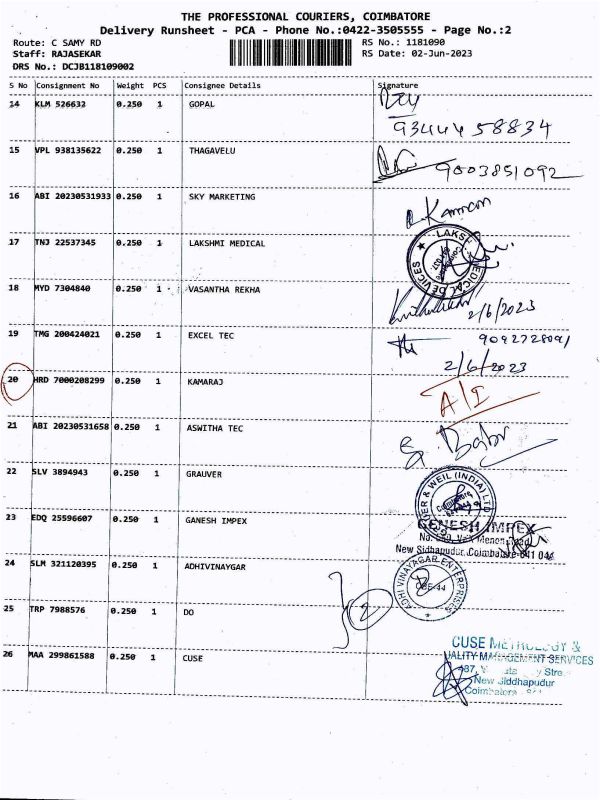 THE PROFESSIONAL COURIERS, COIMBATORE
Delivery Runsheet - PCA - Phone No.:0422-3505555 - Page No.:2
Route: C SAMY RD RS No.: 1181090
Staff: RAJASEKAR RS Date: 02-Jun-2023
DRS No.: DCJB118109002
S No Consignment No Weight PCS Consignee Details Signature
14 KLM 526632 0.250 1 GOPAL
9344458834
15 VPL 938135622 0.250 1 THAGAVELU
9003851092
16 ABI 20230531933 0.250 1 SKY MARKETING
17 TNJ 22537345 0.250 1 LAKSHMI MEDICAL
MEDICAL DEVICES
18 MYD 7304840 0.250 1 VASANTHA REKHA
2/6/2023
19 TMG 200424021 0.250 1 EXCEL TEC
9092728091
2/6/2023
20 HRD 7000208299 0.250 1 KAMARAJ
A/I
21 ABI 20230531658 0.250 1 ASWITHA TEC
22 SLV 3894943 0.250 1 GRAUVER
& WEIL (INDIA) LTD
23 EDQ 25596607 0.250 1 GANESH IMPEX
GENESH IMPEX
New Sidhapudur, Coimbatore-641 044
24 SLM 321120395 0.250 1 ADHIVINAYGAR
ADHI VINAYAGAR ENTERPRISES
25 TRP 7988576 0.250 1 DO
26 MAA 299861588 0.250 1 CUSE
CUSE METROLOGY &
QUALITY MANAGEMENT SERVICES
New Siddhapudur
Coimbatore